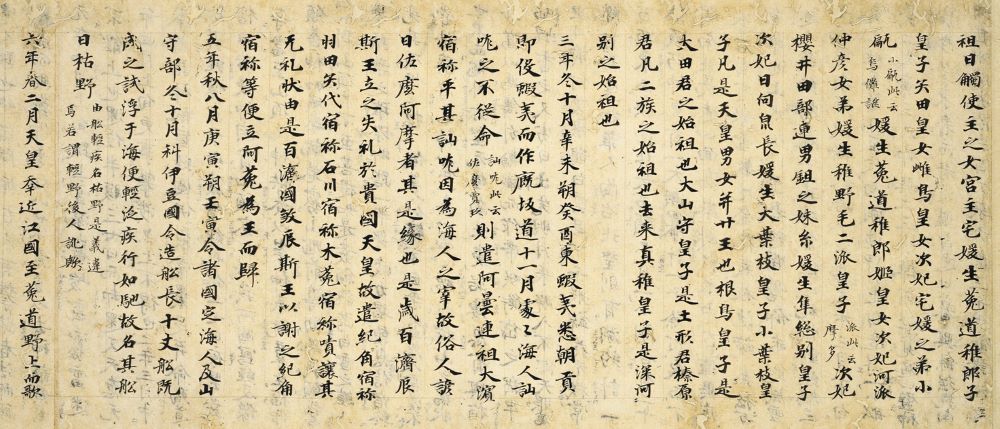 祖日觸使主之女宮主宅媛生菟道稚郎子
皇子矢田皇女雌鳥皇女次妃宅媛之弟小
甂小甂此云烏儺謎媛生菟道稚郎姬皇女次妃河派
仲彦女弟媛生稚野毛二派皇子派此云摩多次妃
櫻井田部連男鉏之妹糸媛生隼総別皇子
次妃日向泉長媛生大葉枝皇子小葉枝皇
子凡是天皇男女并廿王也根鳥皇子是
大田君之始祖也大山守皇子是土形君榛原
君凡二族之始祖也去来真稚皇子是深河
別之始祖也
三年冬十月辛未朔癸酉東蝦夷悉朝貢
即役蝦夷而作厩坂道十一月處々海人訕
哤之不従命訕哤此云佐麼賣玖則遣阿曇連祖大濱
宿祢平其訕哤因為海人之宰故俗人諺
曰佐麼阿摩者其是縁也是歳百濟辰
斯王立之失礼於貴國天皇故遣紀角宿祢
羽田矢代宿祢石川宿祢木菟宿祢嘖讓其
无礼状由是百濟國敦辰斯王以謝之紀角
宿祢等便立阿菟為王而歸
五年秋八月庚寅朔壬寅令諸國定海人及山
守部冬十月科伊豆國令造舩長十丈舩既
成之試浮于海便軽泛疾行如馳故名其舩
曰枯野由舩軽疾名枯野是義違焉若謂軽野後人訛歟
六年春二月天皇幸近江國至菟道野上而歌